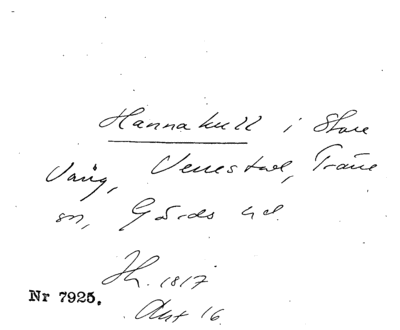 Hannakull i Stora
Vång, Venestad, Träne
sn, Gärds hd.
Sk. 1817
Nr 7925.
Akt 16